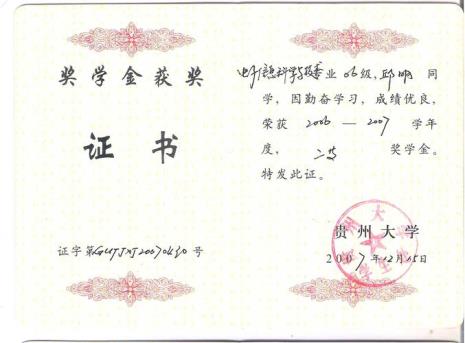 奖学金获奖
证书
证字第 号
电子信息科学与技术专业06级,邱明同
学,因勤奋学习,成绩优良,
荣获 2006 — 2007 学年
度, 二等 奖学金。
特发此证。
贵州大学
2007年12月15日